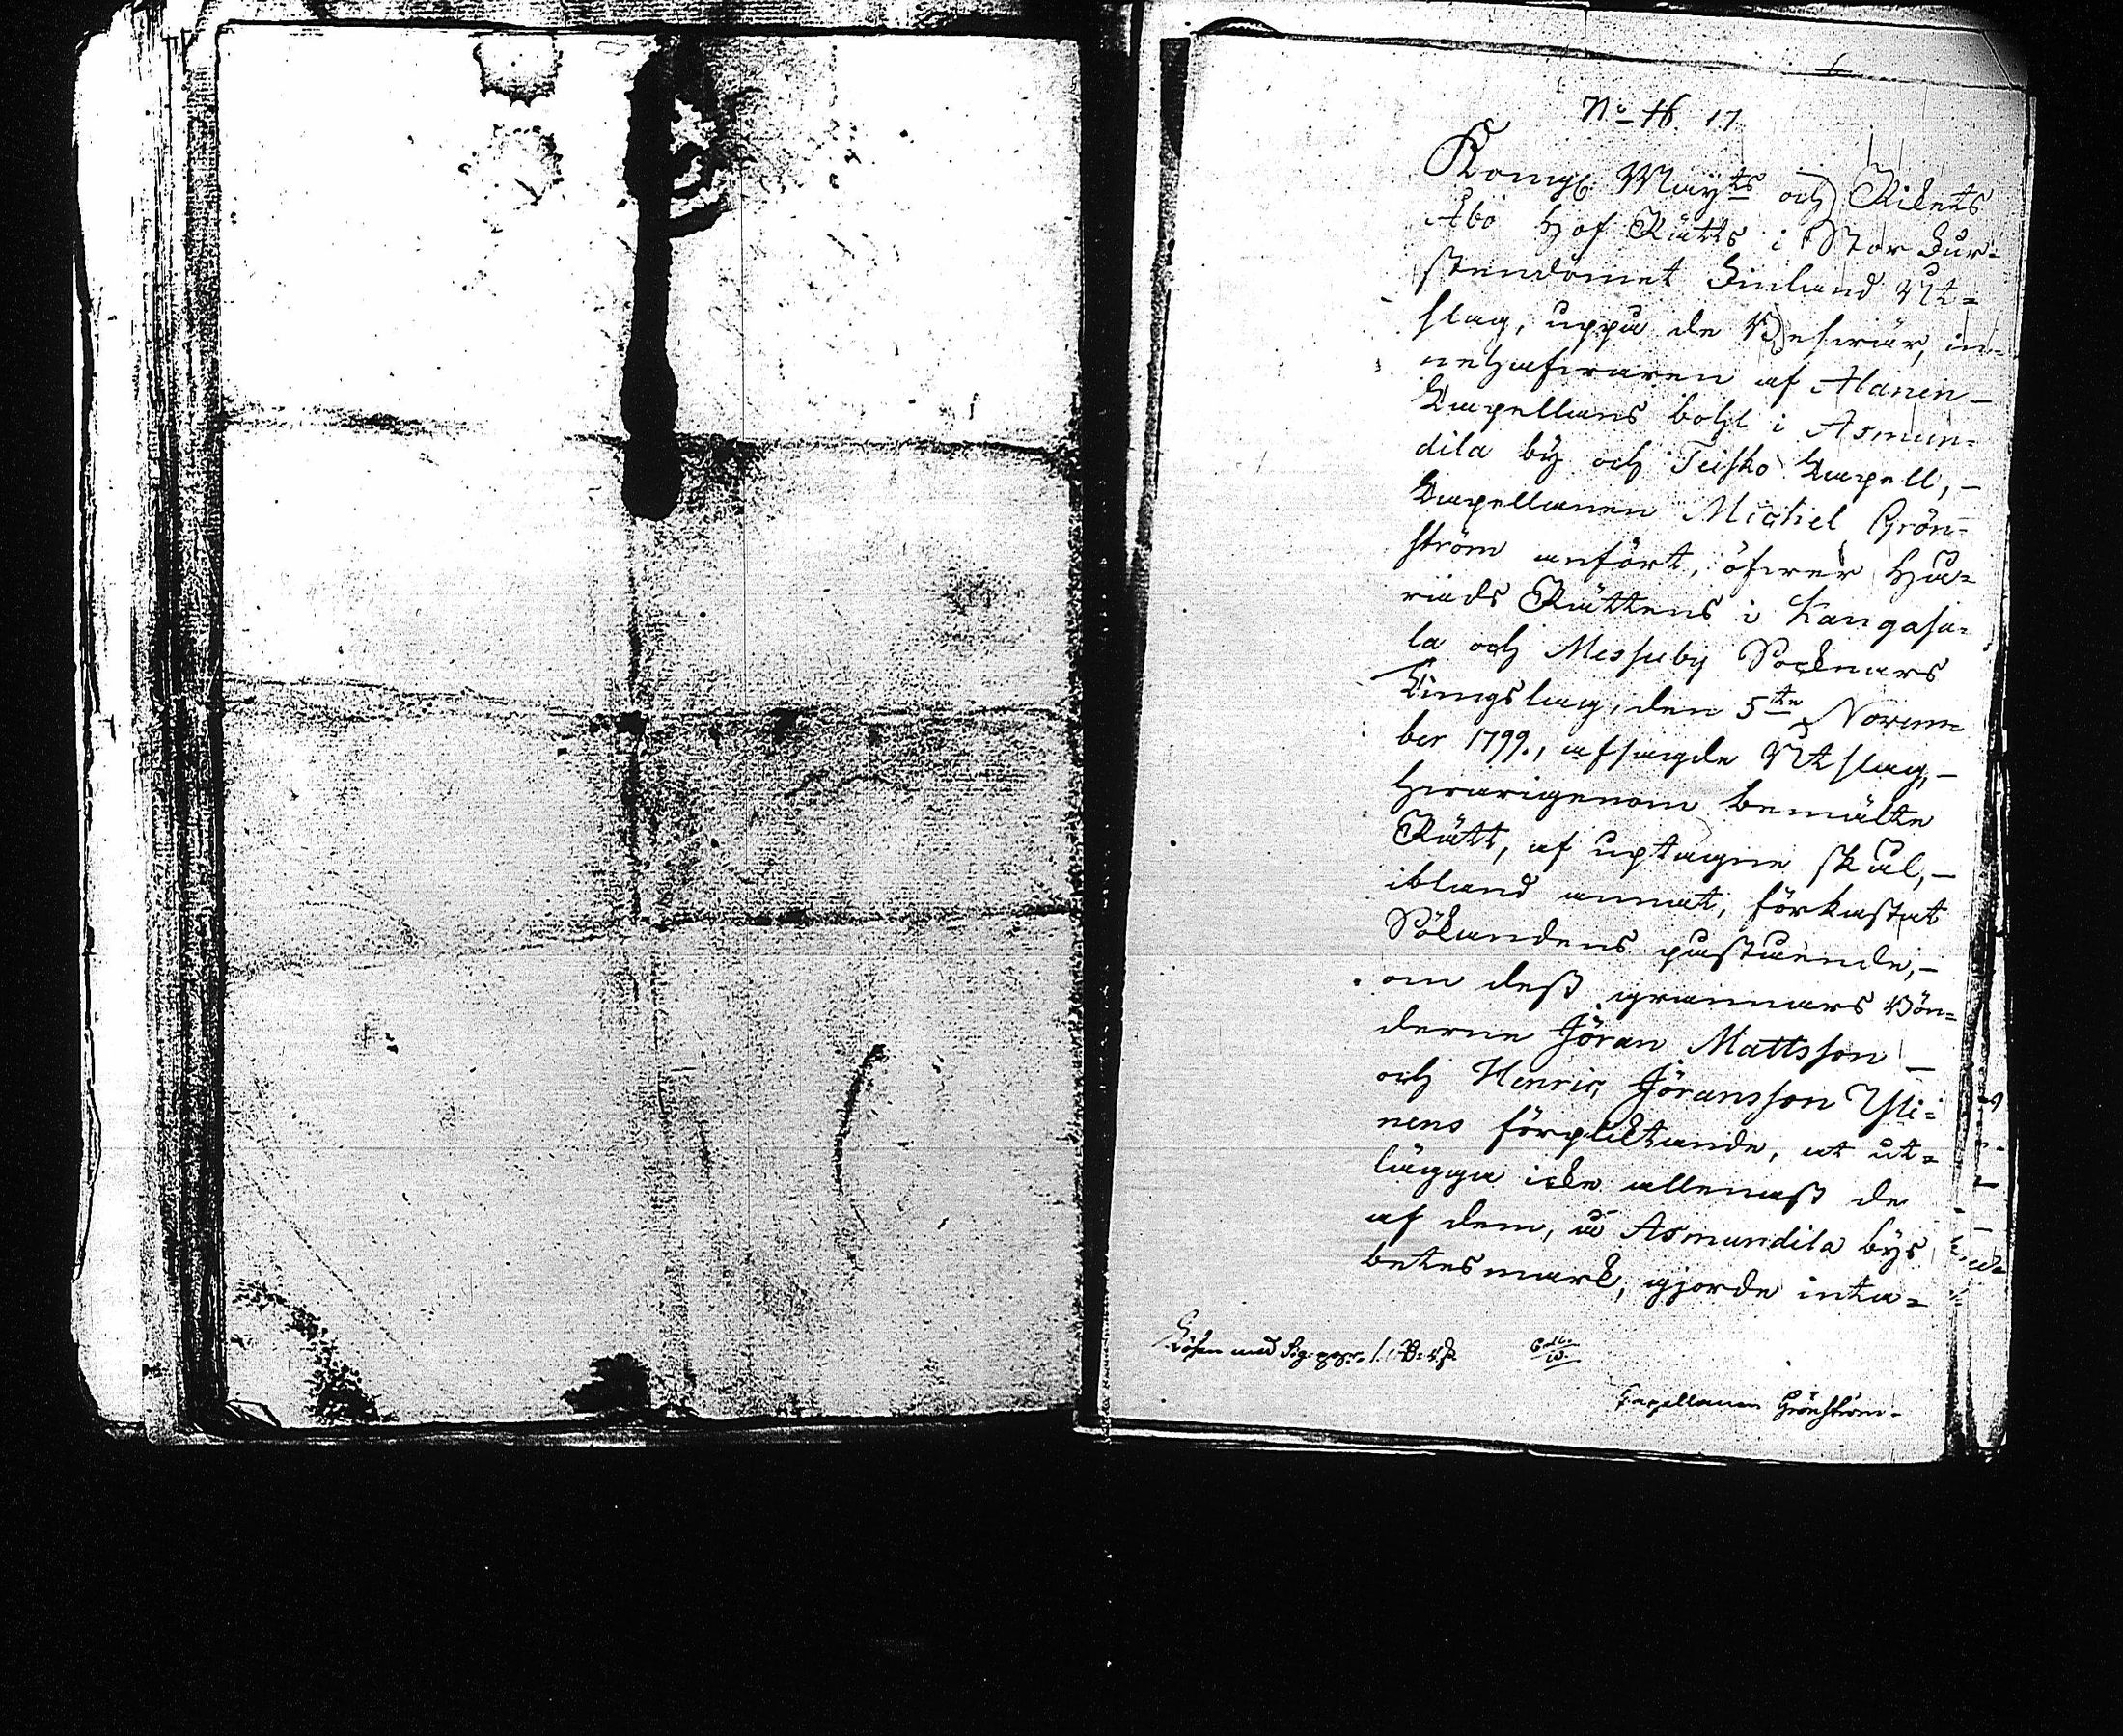 No 16. 17.
Kongl. Mayts och Rikets
Åbo Hof Rätts i Stor Fur-
stendömet Finland Ut-
slag, uppå de Besvär, in-
nehafvaren af Alanen-
Capellans bohl i Asmun-
dila by och Teisko Capell, -
Capellanen Michel Grön-
ström anfört, öfver Hä-
rads Rättens i Kangasa-
la och Messuby Soknars
Tingslag, den 5te Novem
ber 1799., afsagde Utslag, -
hvarigenom bemälte
Rätt, af uptagne skäl, -
ibland annat, förkastat
Sökandens påstående, -
om dess grannars Bön-
derne Jöran Mattsson -
och Henric Jöransson Yli-
nens förpliktande, at ut-
lägga icke allenast de
af dem, å Asmundila bys
betesmark, gjorde inta-
Lösen med
Capellanen Grönström.